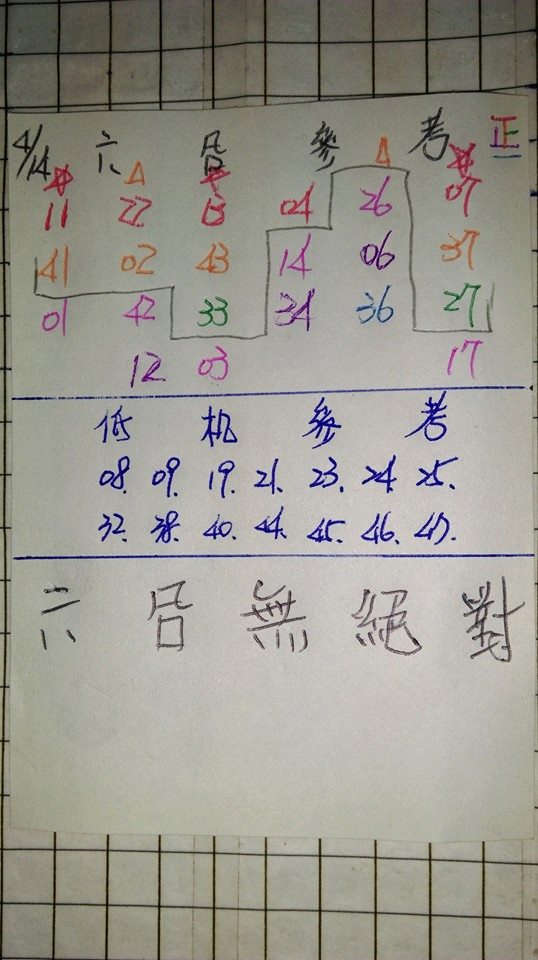 4/14 六 合 參 考 正
11 22 13 04 26 07
41 02 43 14 06 37
01 42 33 34 36 27
12 03 17
低 机 參 考
08. 09. 19. 21. 23. 24. 25.
32. 38. 40. 44. 45. 46. 47.
六 合 無 絕 對